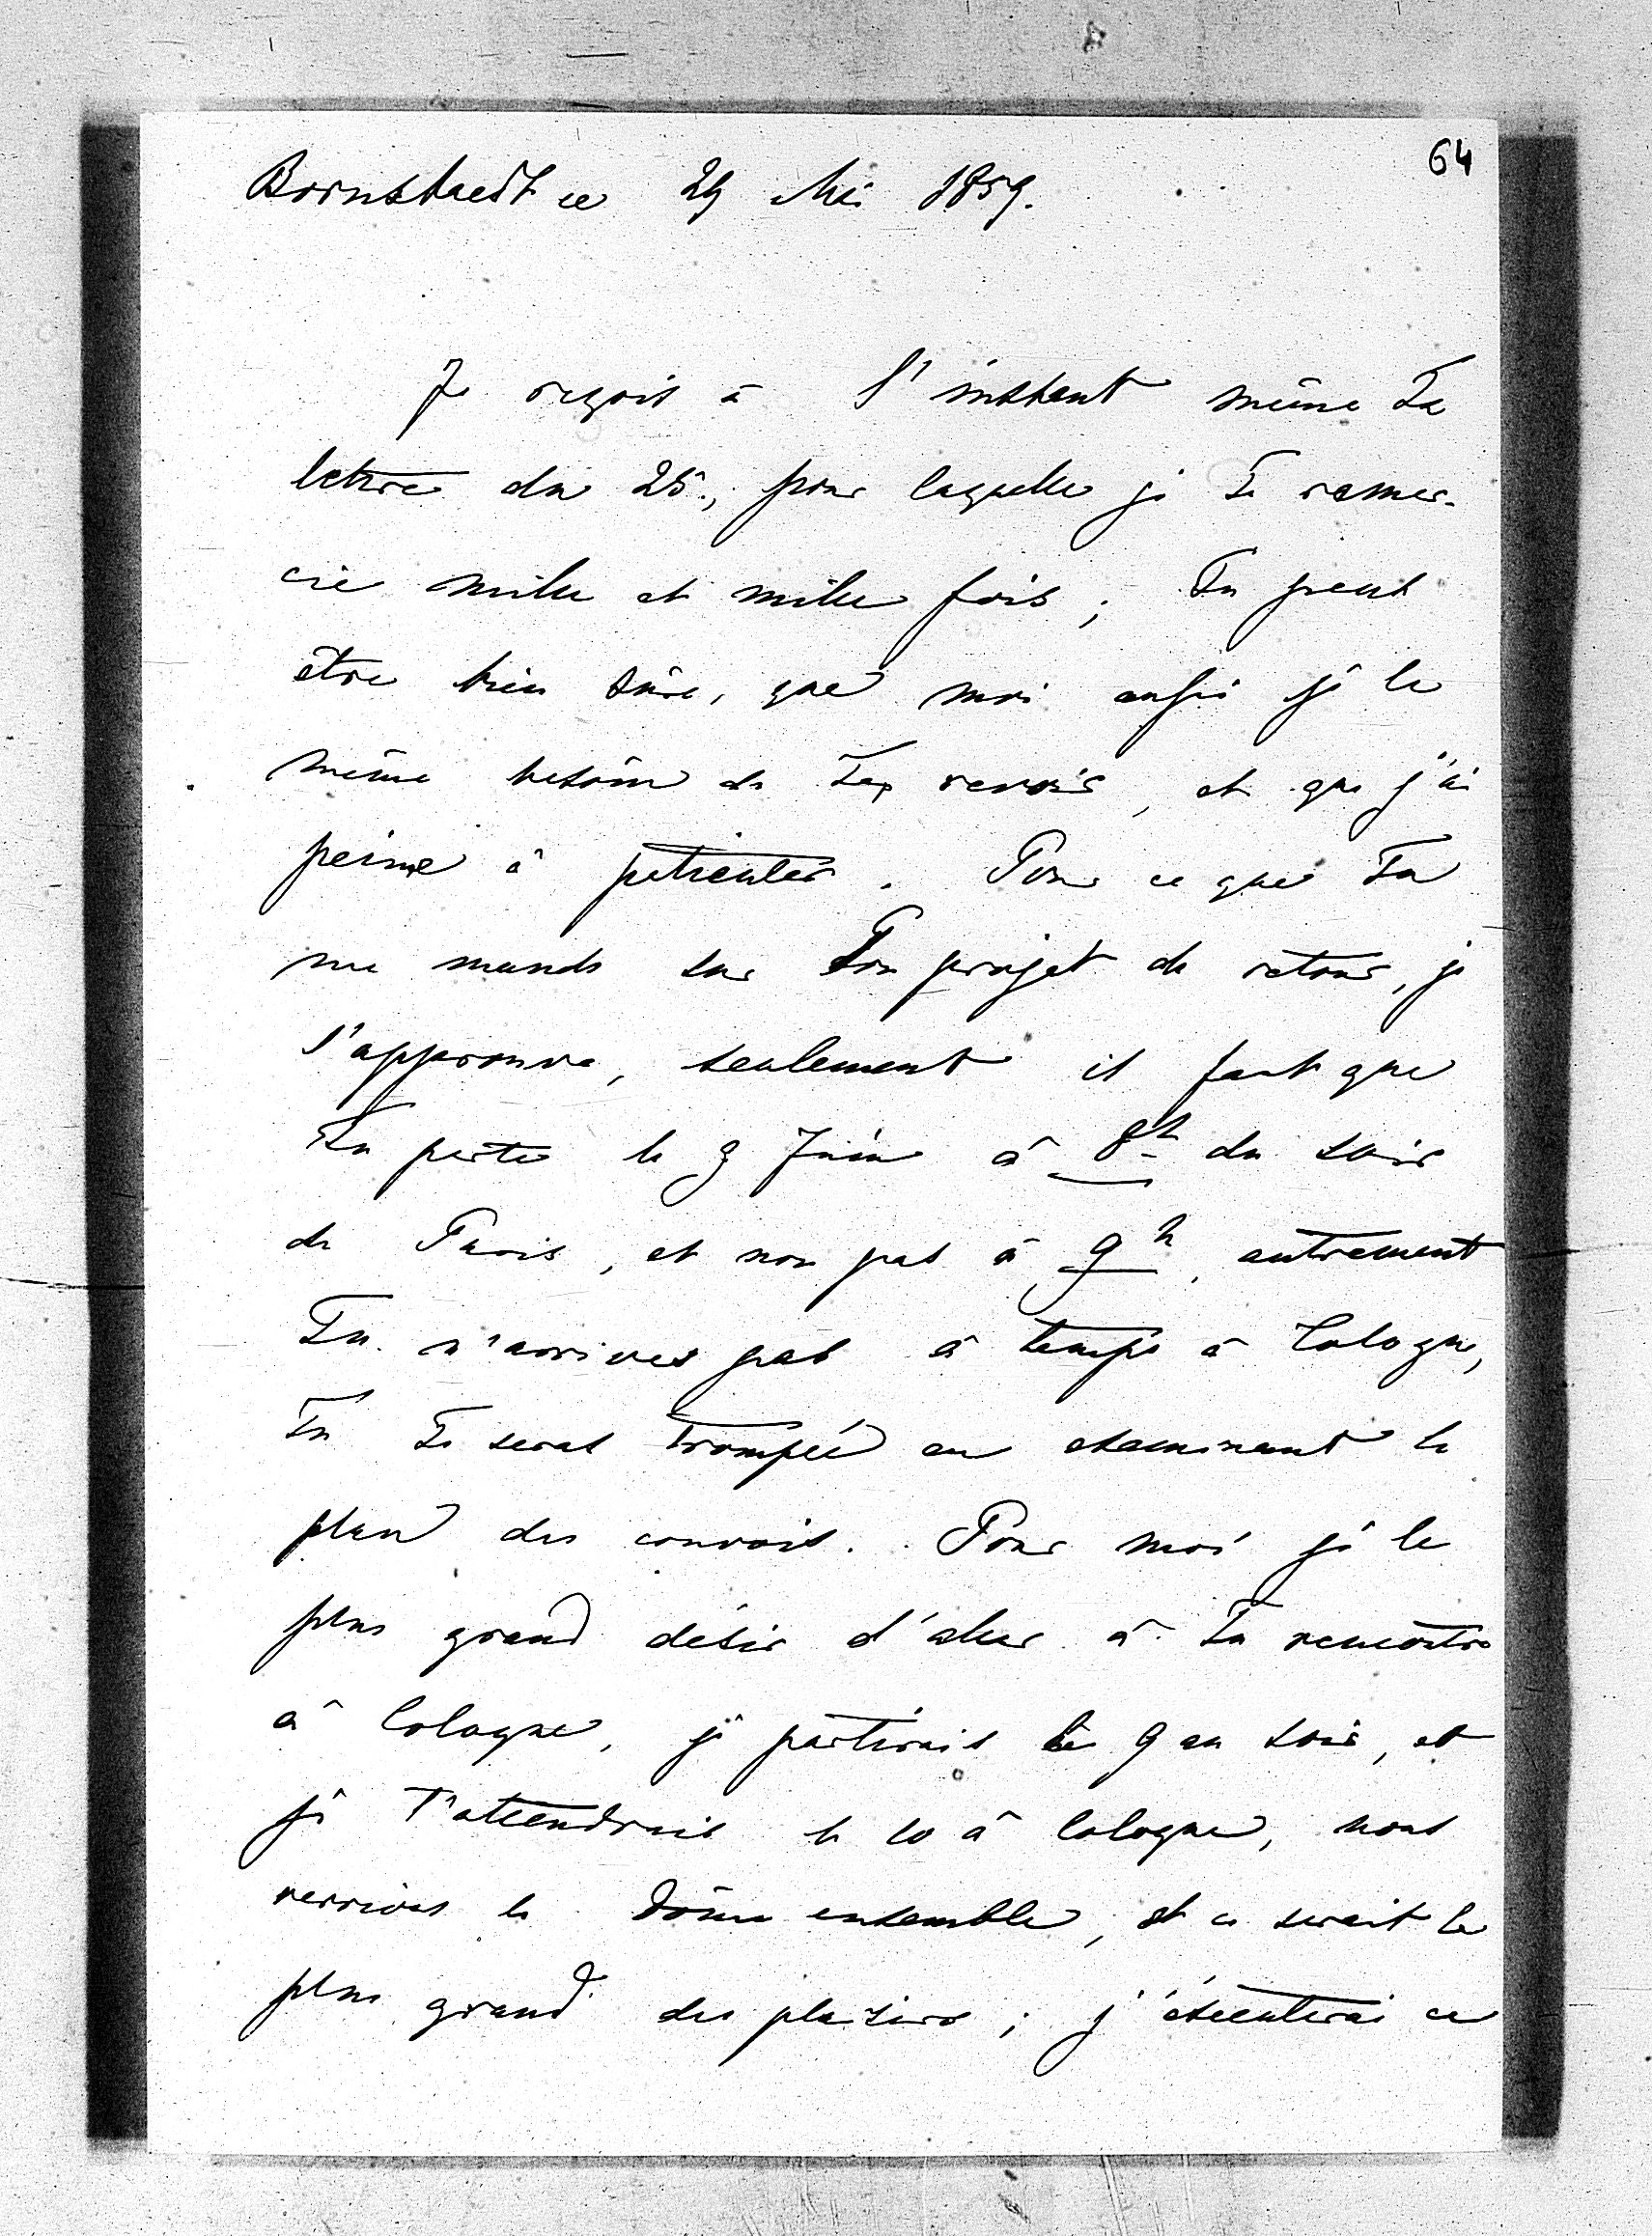 64
Bornstaedt ce 29 Mai 1859.
Je reçois à l'instant même Ta
lettre du 25., pour laquelle je Te remer-
cie mille et mille fois ; Tu peux
être bien sûre, que moi aussi j'ai le
même besoin de Te revoir, et que j'ai
peine à patienter. Pour ce que Tu
me mands sur Ton projet de retour, je
l'approuve, seulement il faut que
Tu parte le 9 Juin à 8h du soir
de Paris, et non pas à 9h, autrement
Tu n'arrives pas à temps à Cologne,
Tu Te seras trompée en examinant le
plan des convois. Pour moi j'ai le
plus grand désir d'aller à Ta rencontre
à Cologne, je partirais le 9 au soir, et
je T'attendrais le 10 à Cologne, nous
verrions le Dôme ensemble, et ce serait le
plus grand des plaisirs ; j'éxécuterai ce